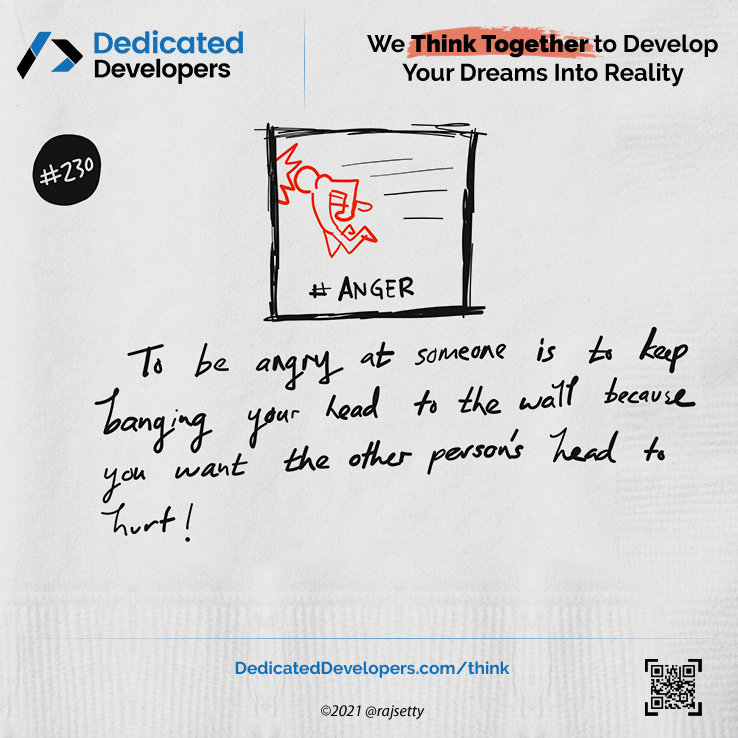 Dedicated
Developers
We Think Together to Develop
Your Dreams Into Reality
#230
# ANGER
To be angry at someone is to keep
banging your head to the wall because
you want the other person's head to
hurt!
DedicatedDevelopers.com/think
©2021 @rajsetty